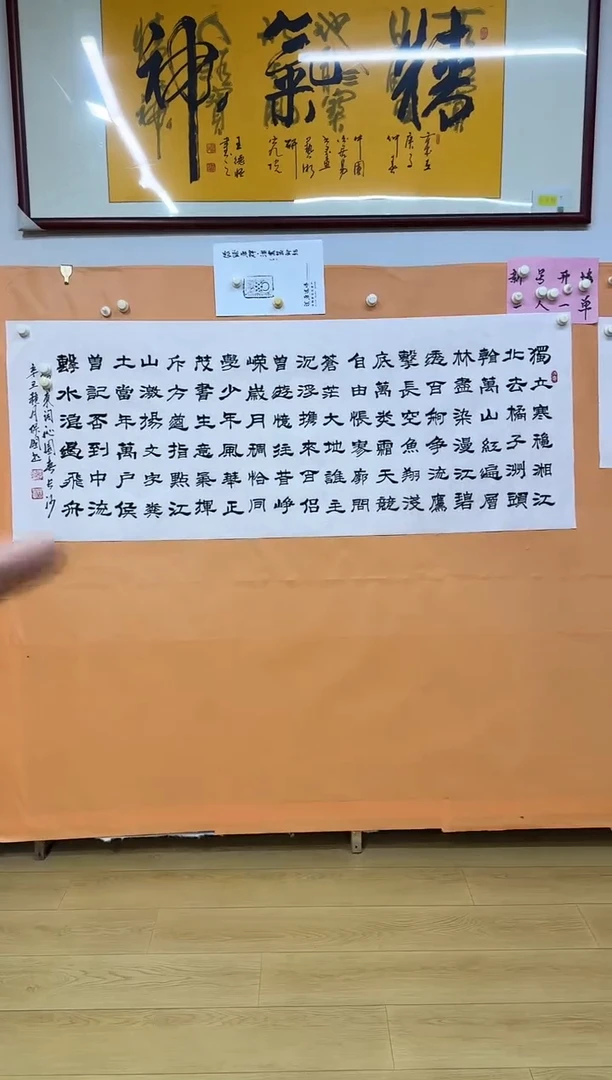 精氣神
新号开播
人一单
獨立寒穐湘江
北去橘子洲頭
翰萬山紅遍層
林盡染漫江碧
透百舸爭流鷹
擊長空魚翔淺
底萬类霜天競
自由悵寥廓問
蒼茫大地誰主
沉浮攜來百侶
曾遊憶往昔崢
嵘歲月稠恰同
學少年風華正
茂書生意氣揮
斥方遒指點江
山激揚文字糞
土當年萬户侯
曾記否到中流
擊水浪遏飛舟
東词沁園春長沙
辛丑穐月